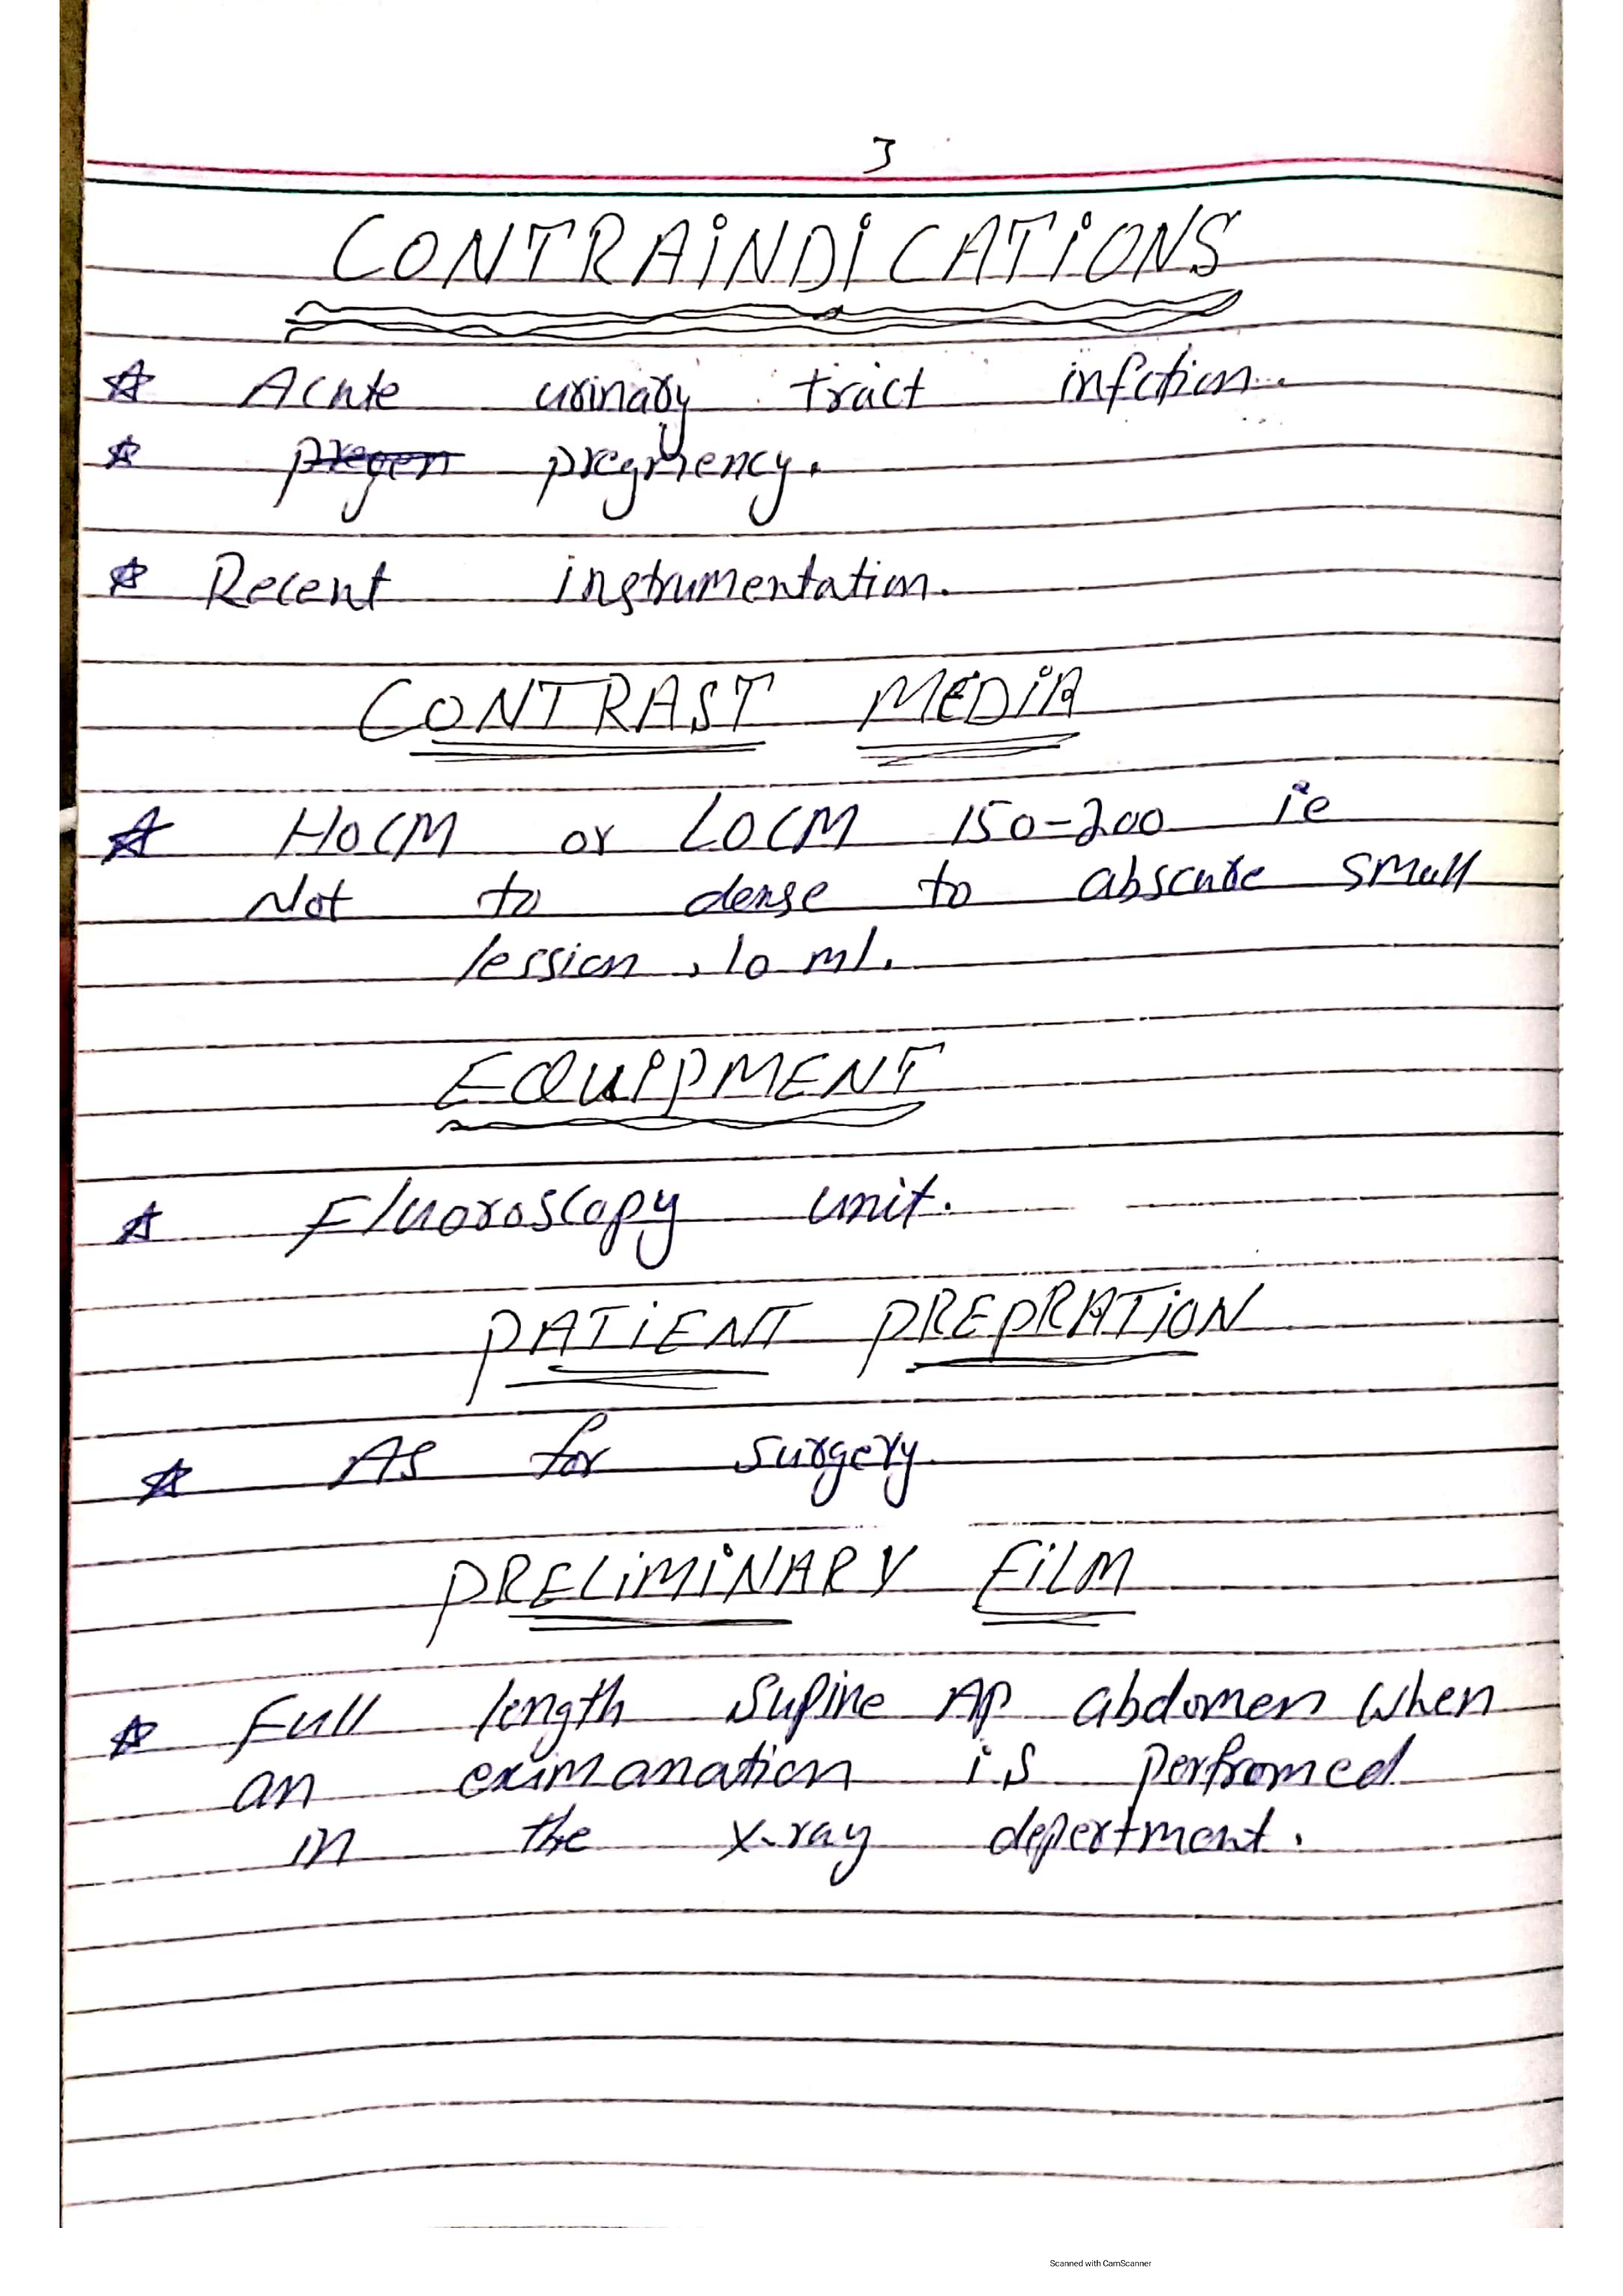 3
CONTRAINDICATIONS
☆ Acute urinary tract infction.
☆ pregen pregnency.
☆ Recent instrumentation.
CONTRAST MEDIA
☆ HOCM or LOCM 150-200 ie
Not to dense to abscure small
lession, 10 ml.
EQUIPMENT
☆ Fluoroscopy unit.
PATIENT PREPRATION
☆ As for surgery.
PRELIMINARY FILM
☆ Full length Supine AP abdomen when
an eximanation is perfromed
in the x-ray depertment.
Scanned with CamScanner